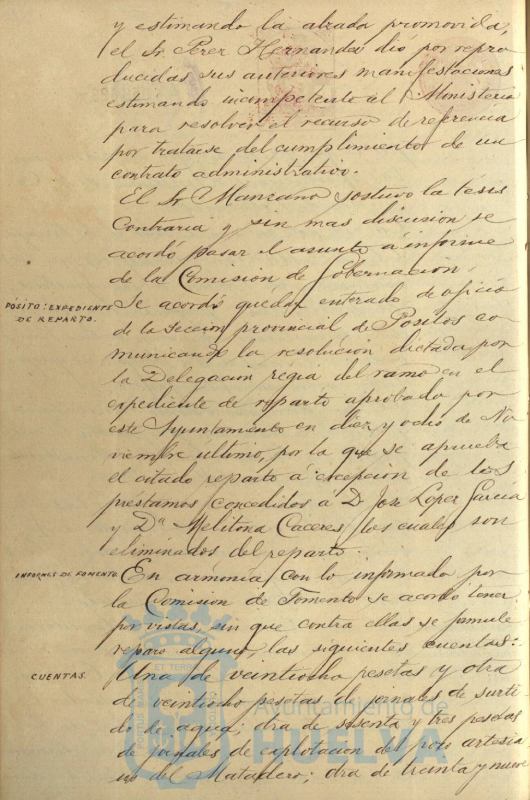 y estimando la alzada promovida,
el Sr Perez Hernandez dió por repro
ducidas sus anteriores manifestaciones
estimando incompetente al Ministerio
para resolver el recurso de referencia
por tratarse del cumplimiento de un
contrato administrativo.
El Sr Manzano sostuvo la tesis
contraria y sin mas discusion se
acordó pasar el asunto á informe
de la Comisión de Gobernación.
PÓSITO: EXPEDIENTE
DE REPARTO.
Se acordó quedar enterado de oficio
de la Sección provincial de Pósitos co
municando la resolución dictada por
la Delegacion regia del ramo en el
expediente de reparto aprobado por
este Ayuntamiento en diez y ocho de No
viembre ultimo, por la que se aprueba
el citado reparto á excepcion de los
prestamos concedidos á D. Jose Lopez Garcia
y Dª Melitona Caceres los cuales son
eliminados del reparto.
INFORMES DE FOMENTO.
En armonia con lo informado por
la Comision de Fomento se acordó tener
por vistas, sin que contra ellas se formule
reparo alguno, las siguientes cuentas:
CUENTAS.
Una de veintiocho pesetas y otra
de veintiocho pesetas de jornales de surti
do de agua; otra de sesenta y tres pesetas
de jornales de explotacion del pozo artesia
no del Matadero; otra de treinta y nueve
Ayuntamiento de
HUELVA